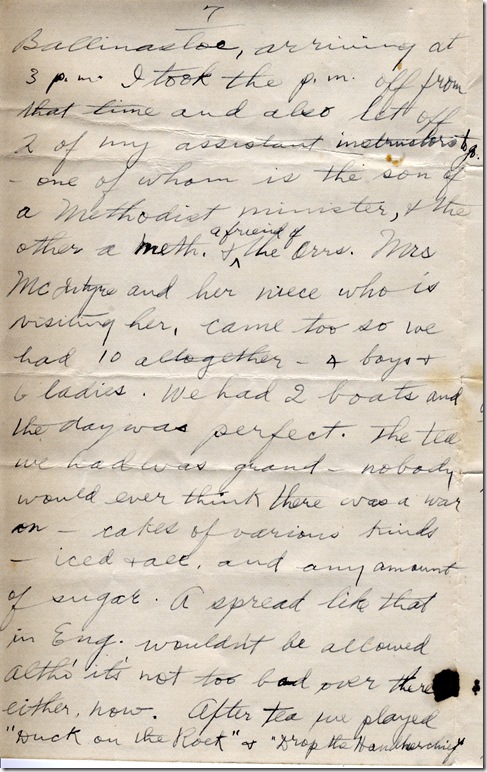 7
Ballinasloe, arriving at
3 p.m. I took the p.m. off from
that time and also let off
2 of my assistant instructors to go.
- one of whom is the son of
a Methodist minister, & the
other a Meth. & a friend of the Orrs. Mrs
McIntyre and her niece who is
visiting her, came too so we
had 10 altogether - 4 boys &
6 ladies. We had 2 boats and
the day was perfect. The tea
we had was grand - nobody
would ever think there was a war
on - cakes of various kinds
- iced & all, and any amount
of sugar. A spread like that
in Eng. wouldn't be allowed
altho' it's not too bad over there
either, now. After tea we played
"Duck on the Rock" & "Drop the Handkerchief"